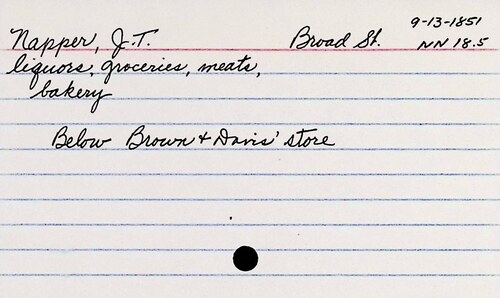 9-13-1851
Napper, J.T. Broad St. NN 18.5
liquors, groceries, meats,
bakery
Below Brown + Davis' store